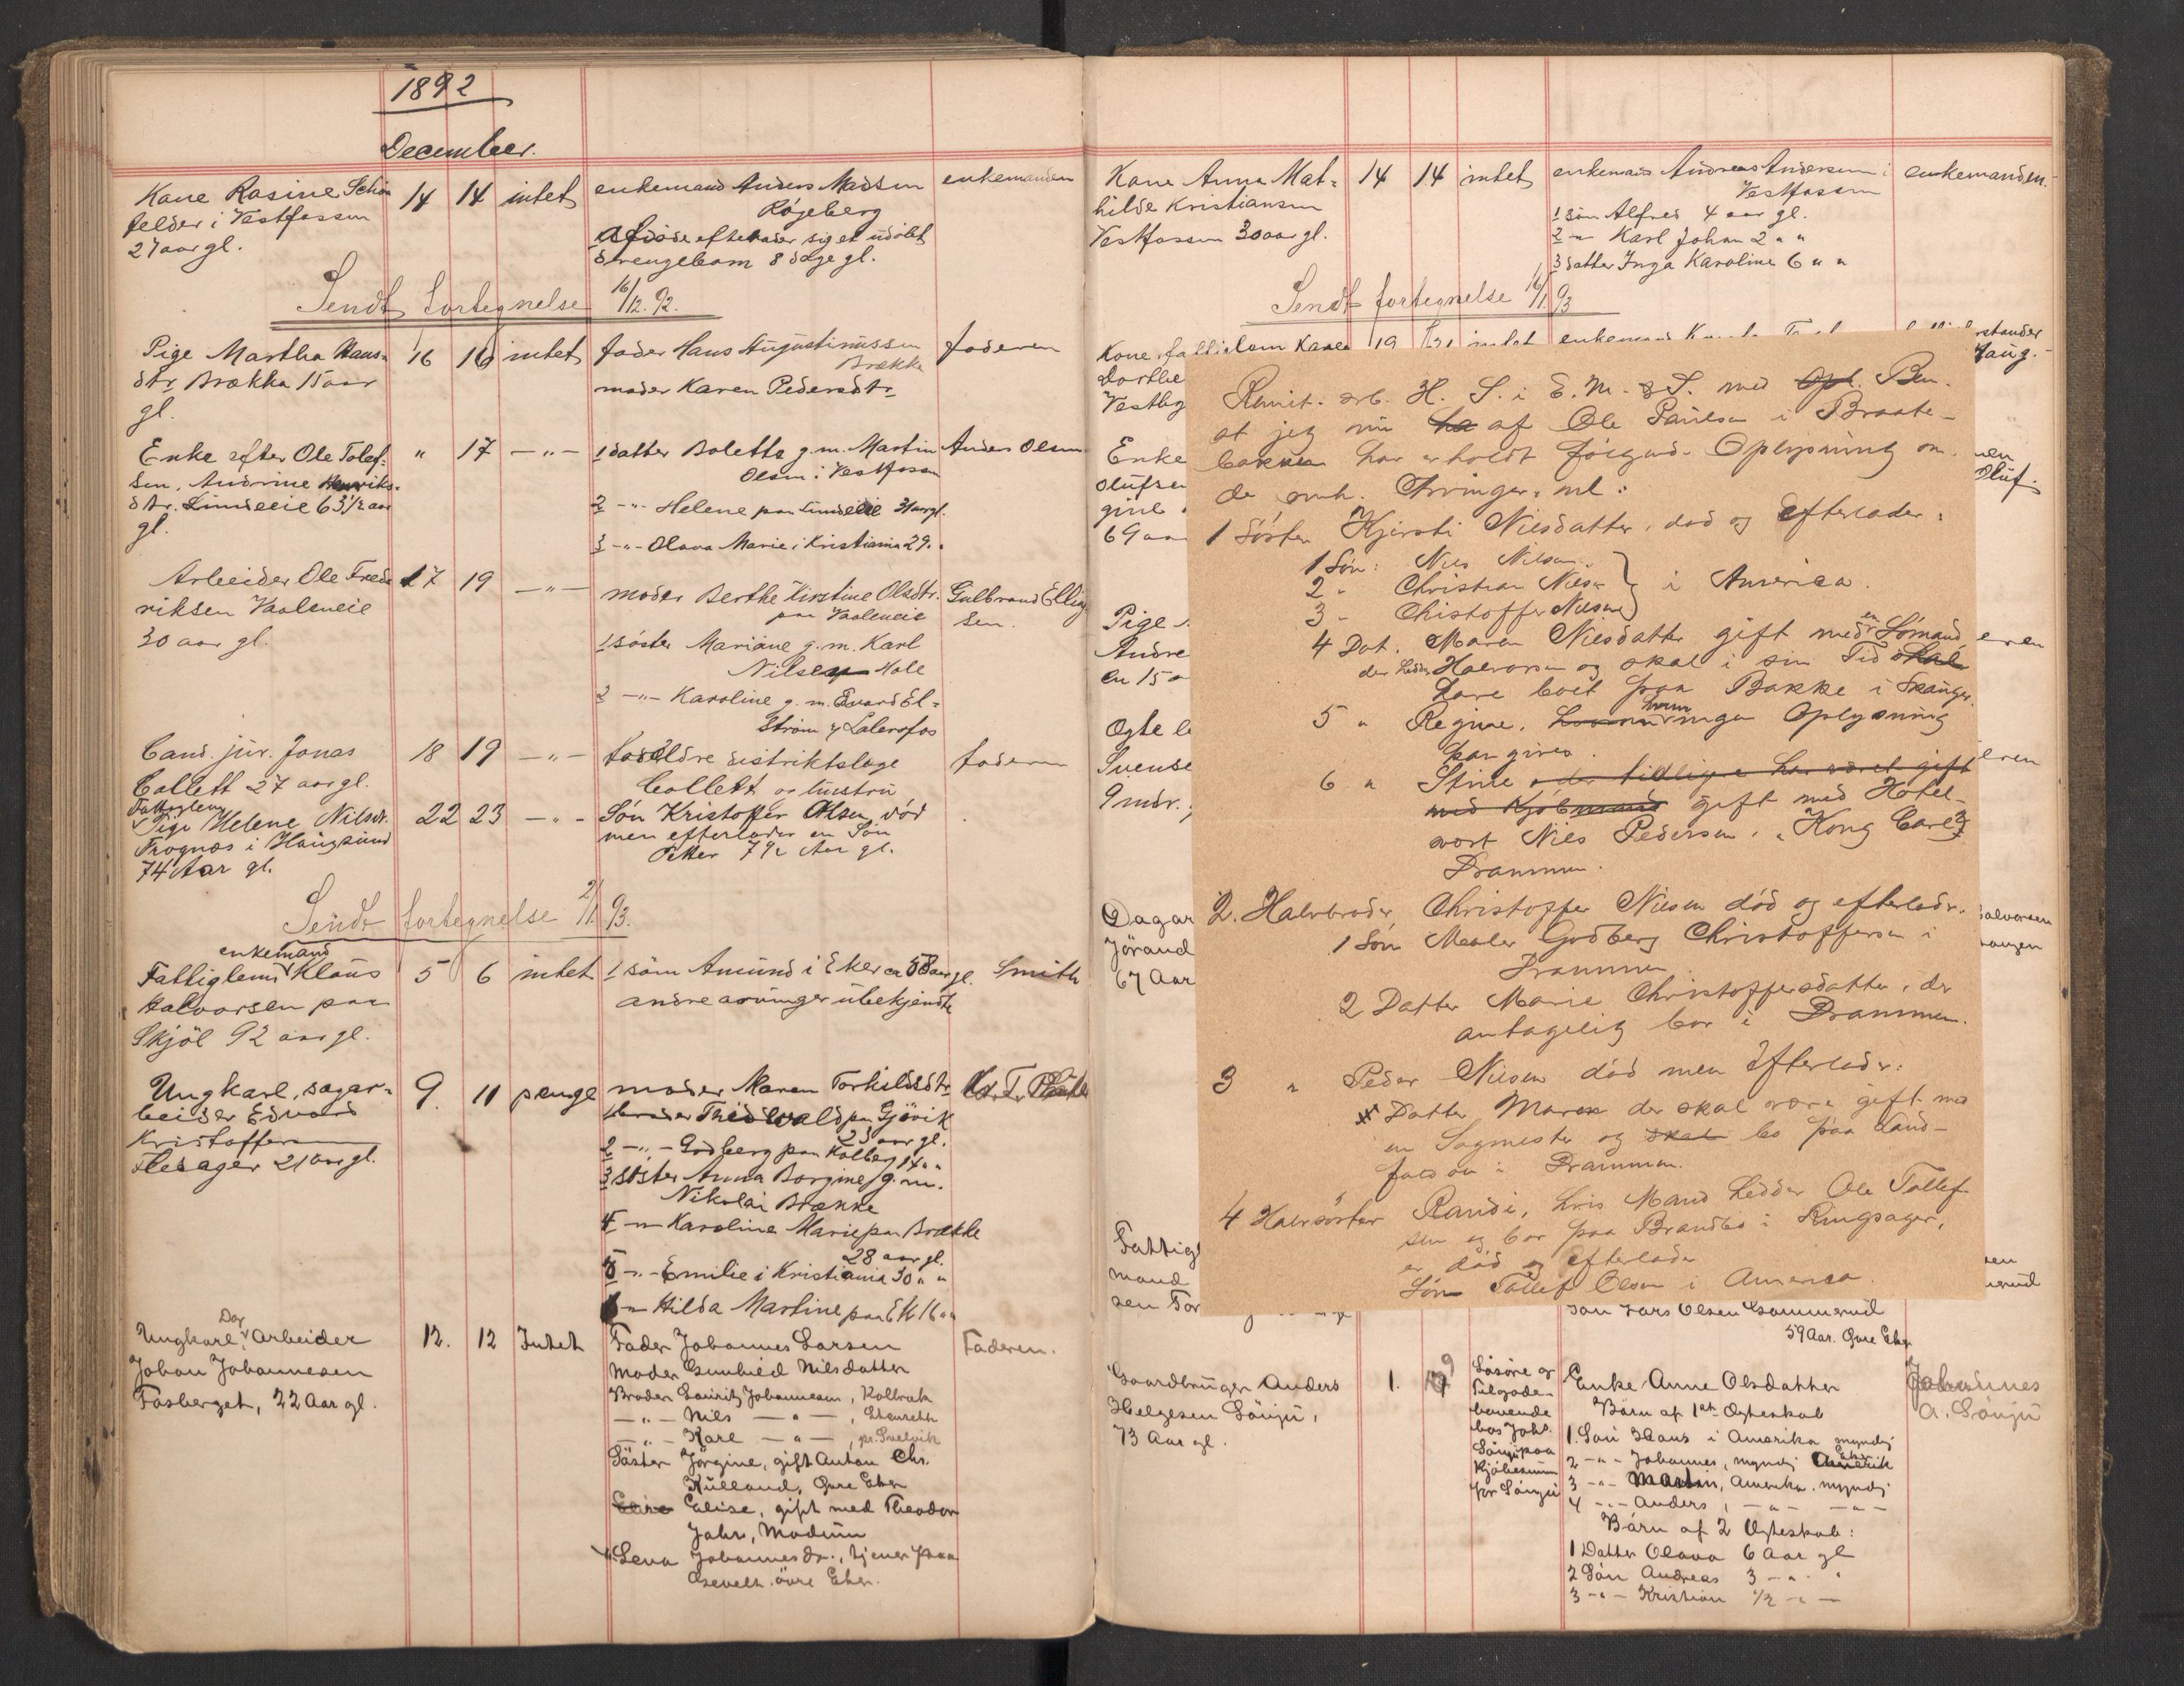 1892
December.
Kone Rasine Schön
felder i Vestfossen
27 aar gl.
14 14 intet
enkemand Anders Madsen
Røgeberg
Afdøde efterlader sig et udøbt
drengebarn 8 dage gl.
enkemanden
Sendt fortegnelse 16/12.92.
Pige Martha Hans=
dtr. Brække 15 aar
gl.
16 16 intet
fader Hans Augustinussen
Brække
moder Karen Pedersdtr.
faderen
Enke efter Ole Tolef=
sen, Andrine Henriks=
dtr. Lundeeie 63 1/2 aar
gl.
" 17 -"-
1 datter Bolette g.m. Martin
Olsen i Vestfossen
2 -"- Helene paa Lundeeie 31 aar gl.
3 -"- Olava Marie i Kristiania 29 "
Anders Olsen
Arbeider Ole Fred=
riksen Vaaleneie
30 aar gl.
17 19 -"-
moder Berthe Kirstine Olsdtr.
paa Vaaleneie
1 søster Mariane g.m. Karl
Nilsen Hole
2 -"- Karoline g.m. Evard El=
strøm
Gulbrand Elling
sen.
Cand. jur. Jonas
Collett 27 aar gl.
18 19 -"-
forældre distriktslæge
Collett og hustru
faderen
Fattiglem
Pige Helene Nilsdr.
Frognæs i Haugsund
74 Aar gl.
22 23 -"-
Søn Kristoffer Olsen død
men efterlader en Søn
Petter 7 1/2 Aar gl.
Sendt fortegnelse 2/1 93.
enkemand
Fattiglem Klaus
Halvorsen paa
Skjøl 92 aar gl.
5 6 intet
1 søn Amund i Eker ca 58 aar gl.
andre arvinger ubekjendte
Smith
Ungkarl, sagar=
beider Edvard
Kristoffersen
Flesager 21 aar gl.
9. 11 penge
moder Maren Torkildsdtr.
broder Thidevald paa Gjøvik
23 aar gl.
2 -"- Godberg paa Kolberg 14 " "
3 søster Anna Borgine g.m.
Nikolai Brække
4 -"- Karoline Marie paa Brække
28 aar gl.
5 -"- Emilie i Kristiania 30 " "
6 -"- Hilda Martine paa 16 " "
Dag
Ungkarl, Arbeider
Johan Johannesen
Fosberget, 22 Aar gl.
12. 12 Intet
Fader Johannes Larsen
Moder Gunhild Nilsdatter
Broder Lauritz Johannesen, Kolbræk
-"- Nils -"-,
-"- Karl -"-, pr. Svelvik
Søster Jørgine, gift Anton Chr.
Kulland, Øvre Eker
Elise, gift med Theodor
Jahr, Modum
" Lena Johannesdr., tjener paa
Øvre Eker.
Faderen.
Kone Anna Mat=
hilde Kristiansen
Vestfossen 30 aar gl.
14 14 intet
enkemand Andreas Andersen i
Vestfossen
1 søn Alfred 4 aar gl.
2 -"- Karl Johan 2 " "
3 datter Inga Karoline 6 " "
enkemanden.
Sendt fortegnelse 16/1.93
Kone fattiglem Karen
Dorthe
Vestby
19 21 intet
enkemand
forstander
Haug.
Enke
Olufsen
gine
69 aar
Oluf
Pige
Andre
en 15
eren
Ægte b
Svense
9 mdr.,
Dagar
Jørand
67 Aar
Halvorsen
Fattigl
mand
sen For
Remit. arb. H. S. i E. M. & S. med Opl. Bem.
at jeg nu ha af Ole Paulsen i Braate-
bakken har erholdt følgende Oplysning om
de omh. Arvinger, nl:
1 Søster Kjersti Nilsdatter, død og efterlader:
1 Søn: Nils Nilsen.
2 " Christian Nilsen
3 " Christoffer Nilsen
i America.
4 Dat. Maren Nilsdatter gift med en Sømand
der hedder Halvorsen og skal i sin Tid skal
have boet paa Bakke i Skauger
5 " Regine, hvorom ingen Oplysning
kan gives.
6 " Stine, der tidligere har været gift
med Kjøbmand gift med Hotel-
vært Nils Pedersen, "Kong Carl"
Drammen.
2. Halvbroder Christoffer Nilsen død og efterlader.
1 Søn Maler Godberg Christoffersen i
Drammen
2 Datter Marie Christoffersdatter, der
antagelig bor i Drammen.
3 " Peder Nilsen død men efterlader:
Datter Maren der skal være gift med
en Sagmester og skal bo paa Land-
faldøen i Drammen.
4 Halvsøster Randi, hvis Mand hedder Ole Tollef
sen og bor paa Brandbo i Ringsager,
er død og efterlader
Søn Tollef Olsen i America.
Søn Lars Olsen Gommerud
59 Aar. Øvre Eker
Gaardbruger Anders
Helgesen Lønju,
73 Aar gl.
1. 9
Løsøre og
Tilgode-
havende
hos Joh.
Lønju paa
Kjøbesum
for Lønju
Enke Anne Olsdatter
Børn af 1ste Ægteskab
1. Søn Hans i Amerika myndig
2 -"- Johannes, myndig Eker
3 -"- Martin, Amerika, myndig
4 -"- Anders, -"- -"-
Børn af 2 Ægteskab:
1 Datter Olava 6 Aar gl
2 Søn Andreas 3 -"- "
3 -"- Kristian 1/2 -"-
Johannes
A. Lønju